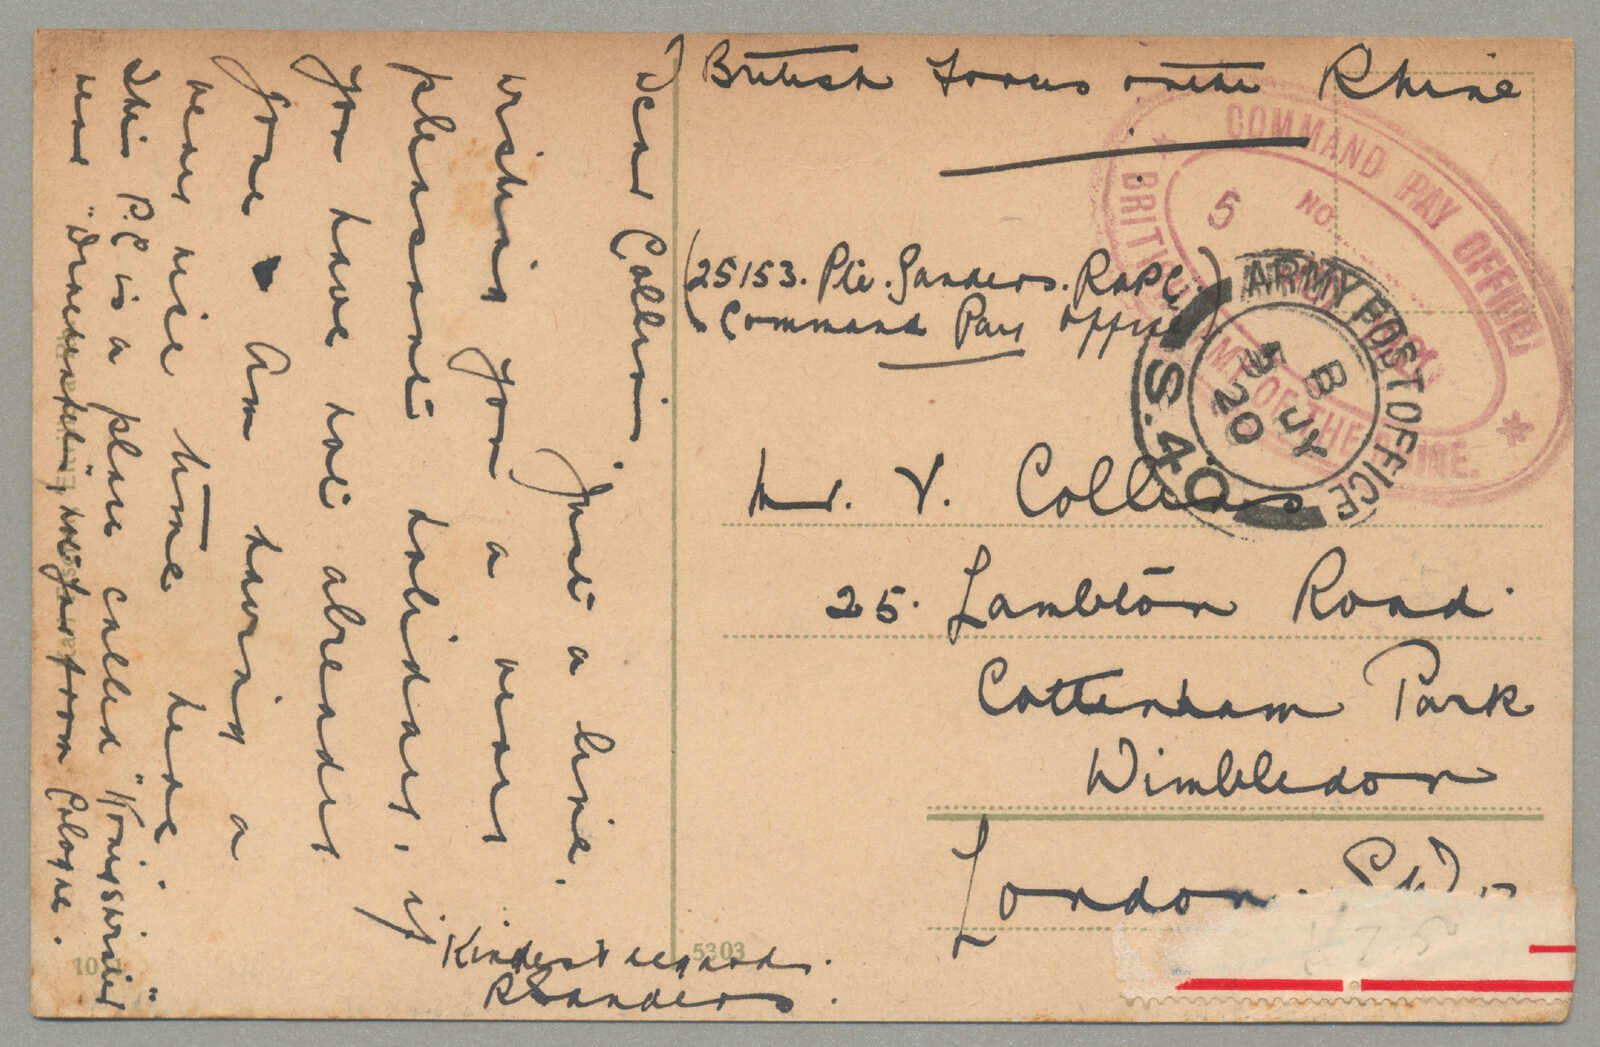 British Forces on the Rhine
(25153. Pte. Sanders. RAPC)
Command Pay Office
Mr. V. Collins
25. Lambton Road.
Cottenham Park
Wimbledon
London.
COMMAND PAY OFFICE,
NO.
5
BRITISH ARMY OF THE RHINE.
ARMY POST OFFICE
S.40
B
5 JY
20
Dear Collins,
Just a line.
wishing you a very
pleasant holiday, if
you have not already
gone. Am having a
very nice time here.
This P.C. is a place called "Königswinter"
near "Drachenfels", not far from Cologne.
Kindest regards.
RSanders.
5303